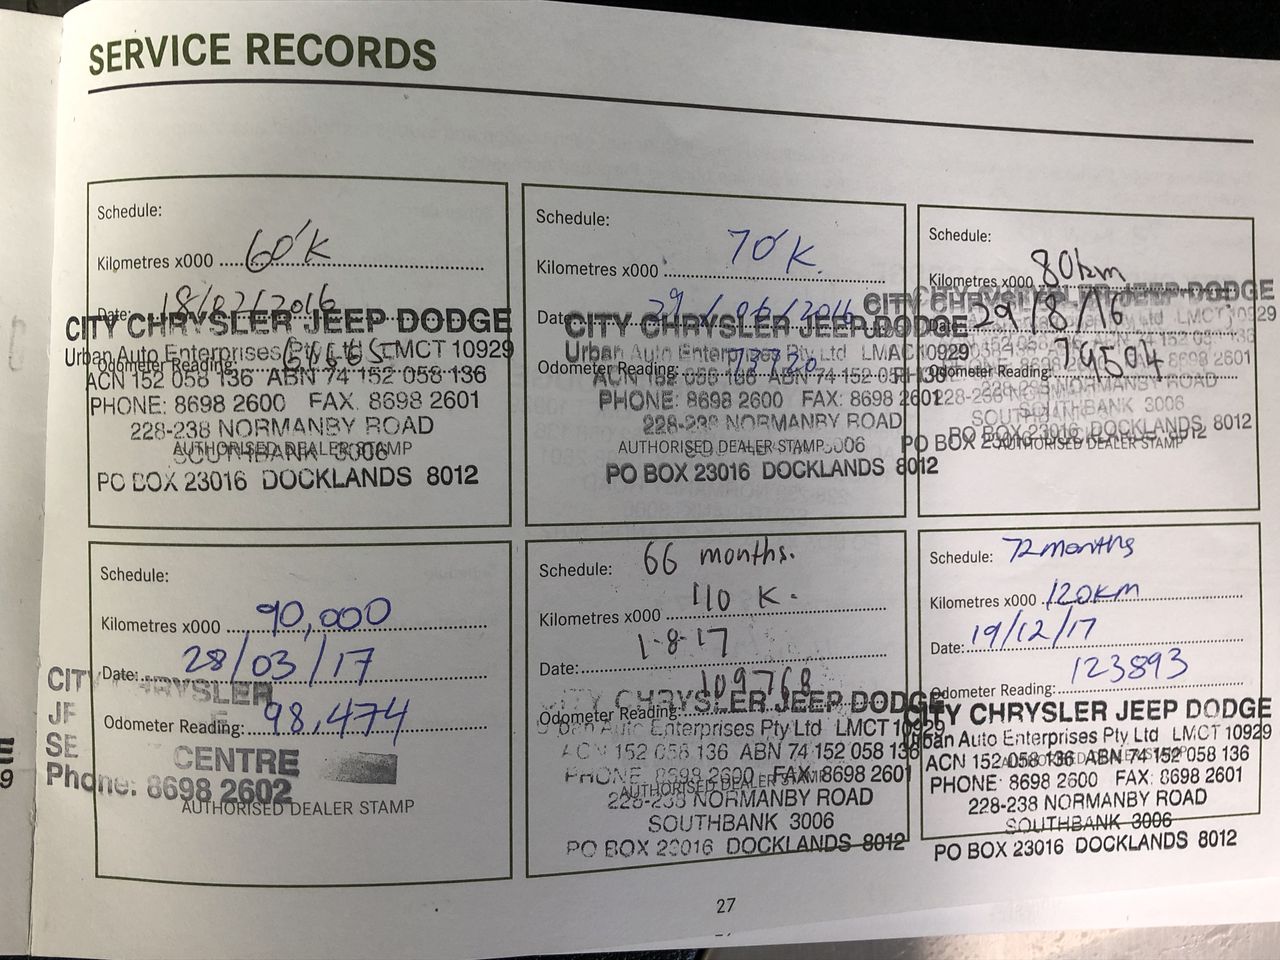 SERVICE RECORDS
Schedule:
Kilometres x000 60'K
Date: 18/02/2016
Odometer Reading:
CITY CHRYSLER JEEP DODGE
Urban Auto Enterprises Pty Ltd LMCT 10929
ACN 152 058 136 ABN 74 152 058 136
PHONE: 8698 2600 FAX. 8698 2601
228-238 NORMANBY ROAD
AUTHORISED DEALER STAMP
SOUTHBANK 3006
PO BOX 23016 DOCKLANDS 8012
Schedule:
Kilometres x000 70'K.
Date: 29/06/2016
Odometer Reading:
CITY CHRYSLER JEEP DODGE
Urban Auto Enterprises Pty Ltd 10929
ACN 152 058 136 ABN 74 152 058 136
PHONE: 8698 2600 FAX: 8698 2601
228-238 NORMANBY ROAD
AUTHORISED DEALER STAMP 3006
PO BOX 23016 DOCKLANDS 8012
Schedule:
Kilometres x000 80km
Date: 29/8/16
Odometer Reading: 79504
CITY CHRYSLER JEEP DODGE
228-238 NORMANBY ROAD
SOUTHBANK 3006
PO BOX 23016 DOCKLANDS 8012
AUTHORISED DEALER STAMP
Schedule:
Kilometres x000 90,000
Date: 28/03/17
Odometer Reading: 98,474
CITY CHRYSLER
CENTRE
Phone: 8698 2602
AUTHORISED DEALER STAMP
Schedule: 66 months.
Kilometres x000 110 K.
Date: 1-8-17
Odometer Reading: 109768
CITY CHRYSLER JEEP DODGE
Urban Auto Enterprises Pty Ltd LMCT 10929
ACN 152 058 136 ABN 74 152 058 136
PHONE: 8698 2600 FAX: 8698 2601
AUTHORISED DEALER STAMP
228-238 NORMANBY ROAD
SOUTHBANK 3006
PO BOX 23016 DOCKLANDS 8012
Schedule: 72 months
Kilometres x000 120km
Date: 19/12/17
Odometer Reading: 123893
CITY CHRYSLER JEEP DODGE
Urban Auto Enterprises Pty Ltd LMCT 10929
ACN 152 058 136 ABN 74 152 058 136
AUTHORISED DEALER STAMP
PHONE: 8698 2600 FAX: 8698 2601
228-238 NORMANBY ROAD
SOUTHBANK 3006
PO BOX 23016 DOCKLANDS 8012
27